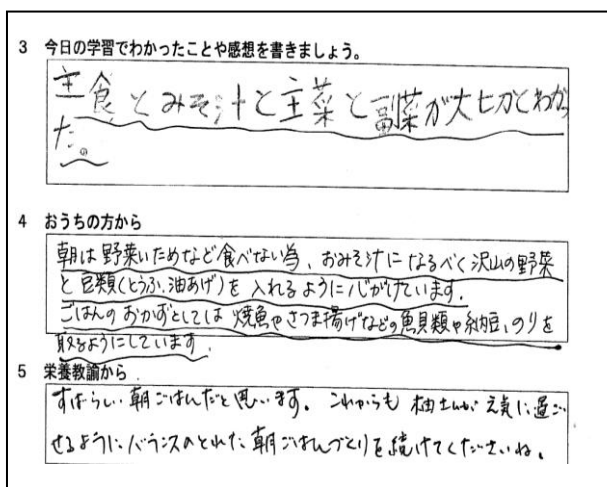 3 今日の学習でわかったことや感想を書きましょう。
主食とみそ汁と主菜と副菜が大切とわかっ
た。
4 おうちの方から
朝は野菜いためなど食べない為、おみそ汁になるべく沢山の野菜
と豆類(とうふ、油あげ)を入れるように心がけています。
ごはんのおかずとしては焼魚やさつま揚げなどの魚貝類や納豆、のりを
取るようにしています。
5 栄養教諭から
すばらしい朝ごはんだと思います。これからも 元気に過ご
せるように、バランスのとれた朝ごはんづくりを続けてくださいね。